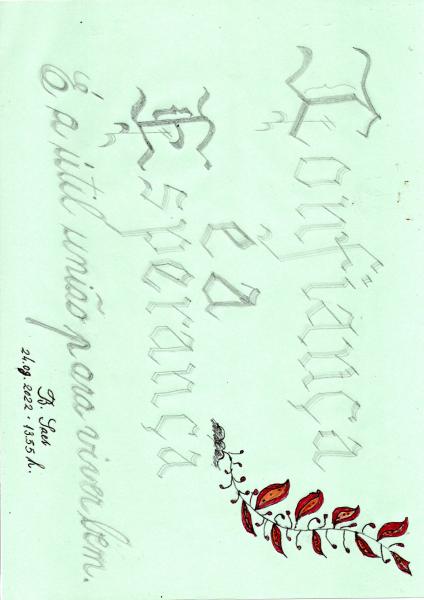 Confiança
é a
Esperança
É a útil união para viver bem.
24.09.2022 · 13.55 h.